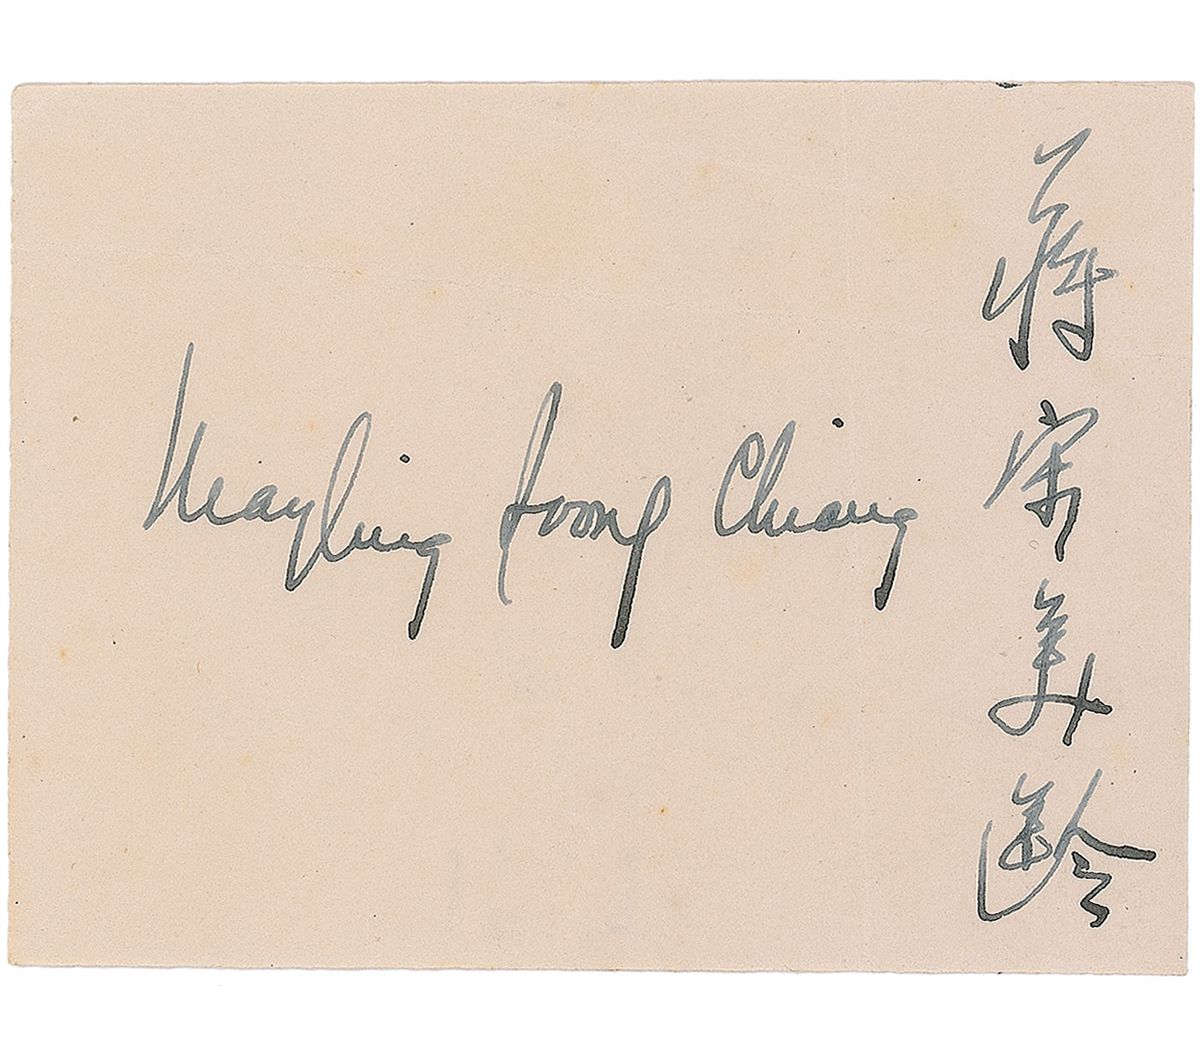 Mayling Soong Chiang
蔣宋美齡